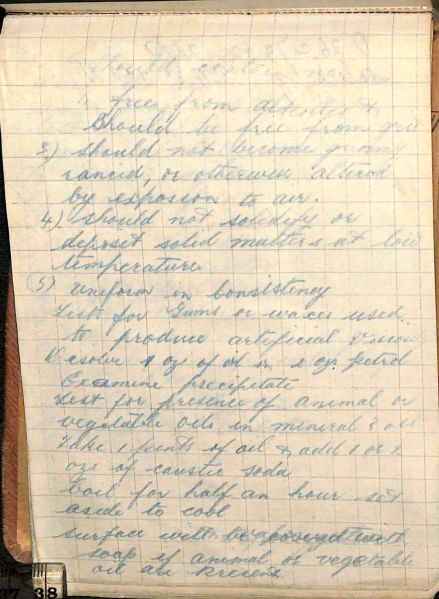 should contain
free from alkalies &
Should be free from grit
3) should not become gummy
rancid, or otherwise altered
by exposion to air.
4) should not solidify or
deposit solid matters at low
temperature
(5) uniform in consistency
Test for Gums or waxes used
to produce artificial viscosity
Desolve 1 oz of oil in 2 ozs petrol
Examine precipitate
Test for presence of animal or
vegetable oils in mineral oil
Take 1 pints of oil & add 1 or 2
ozs of caustic soda
boil for half an hour set
aside to cool
surface will be covered with
soap if animal or vegetable
oil are present.
37 38